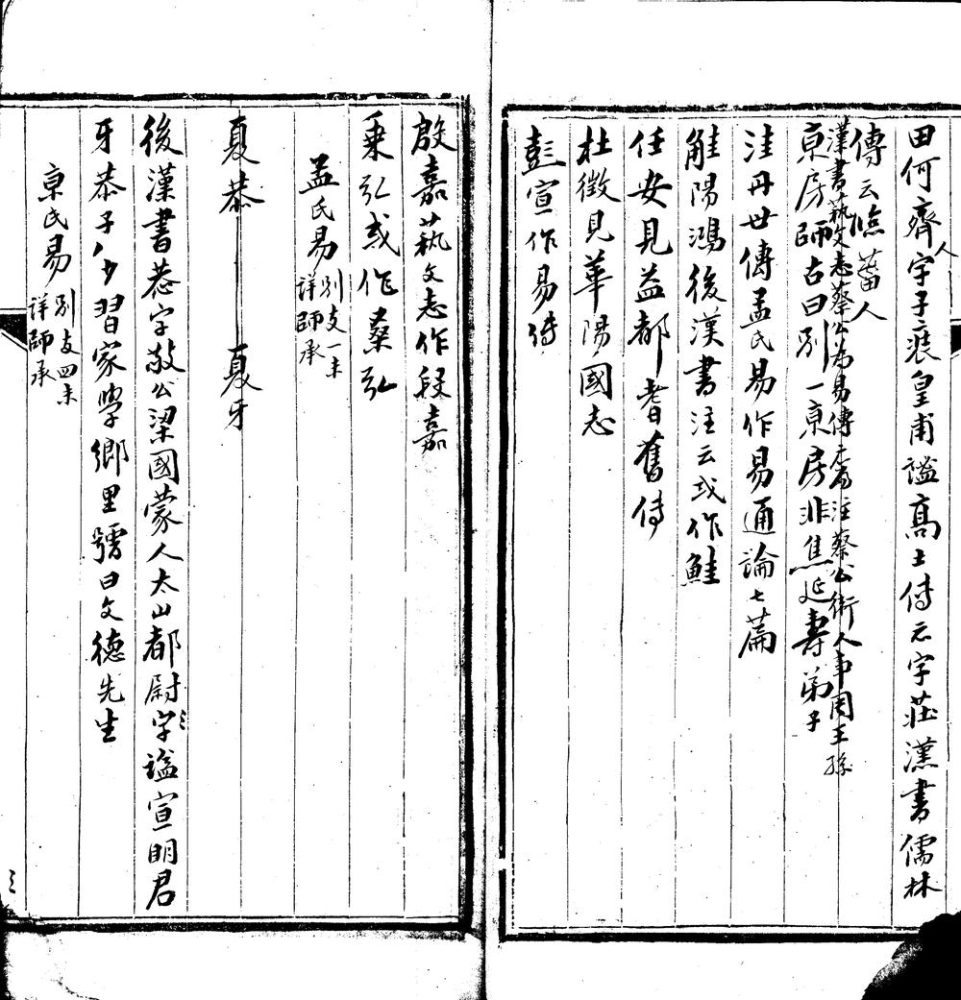 田何齊人字子莊皇甫謐高士傳云字莊漢書儒林
傳云臨菑人
漢書藝文志蔡公為易傳二篇注蔡公衛人事周王孫
京房師古曰別一京房非焦延壽弟子
洼丹世傳孟氏易作易通論七篇
觟陽鴻後漢書注云或作鮭
任安見益都耆舊傳
杜徵見華陽國志
彭宣作易傳
殷嘉蓺文志作段嘉
乗弘或作桑弘
孟氏易別支一末詳師承
夏恭 夏牙
後漢書恭字敬公梁國蒙人太山都尉字謚宣明君
牙恭子少習家學鄉里號曰文德先生
京氏易別支四未詳師承
三